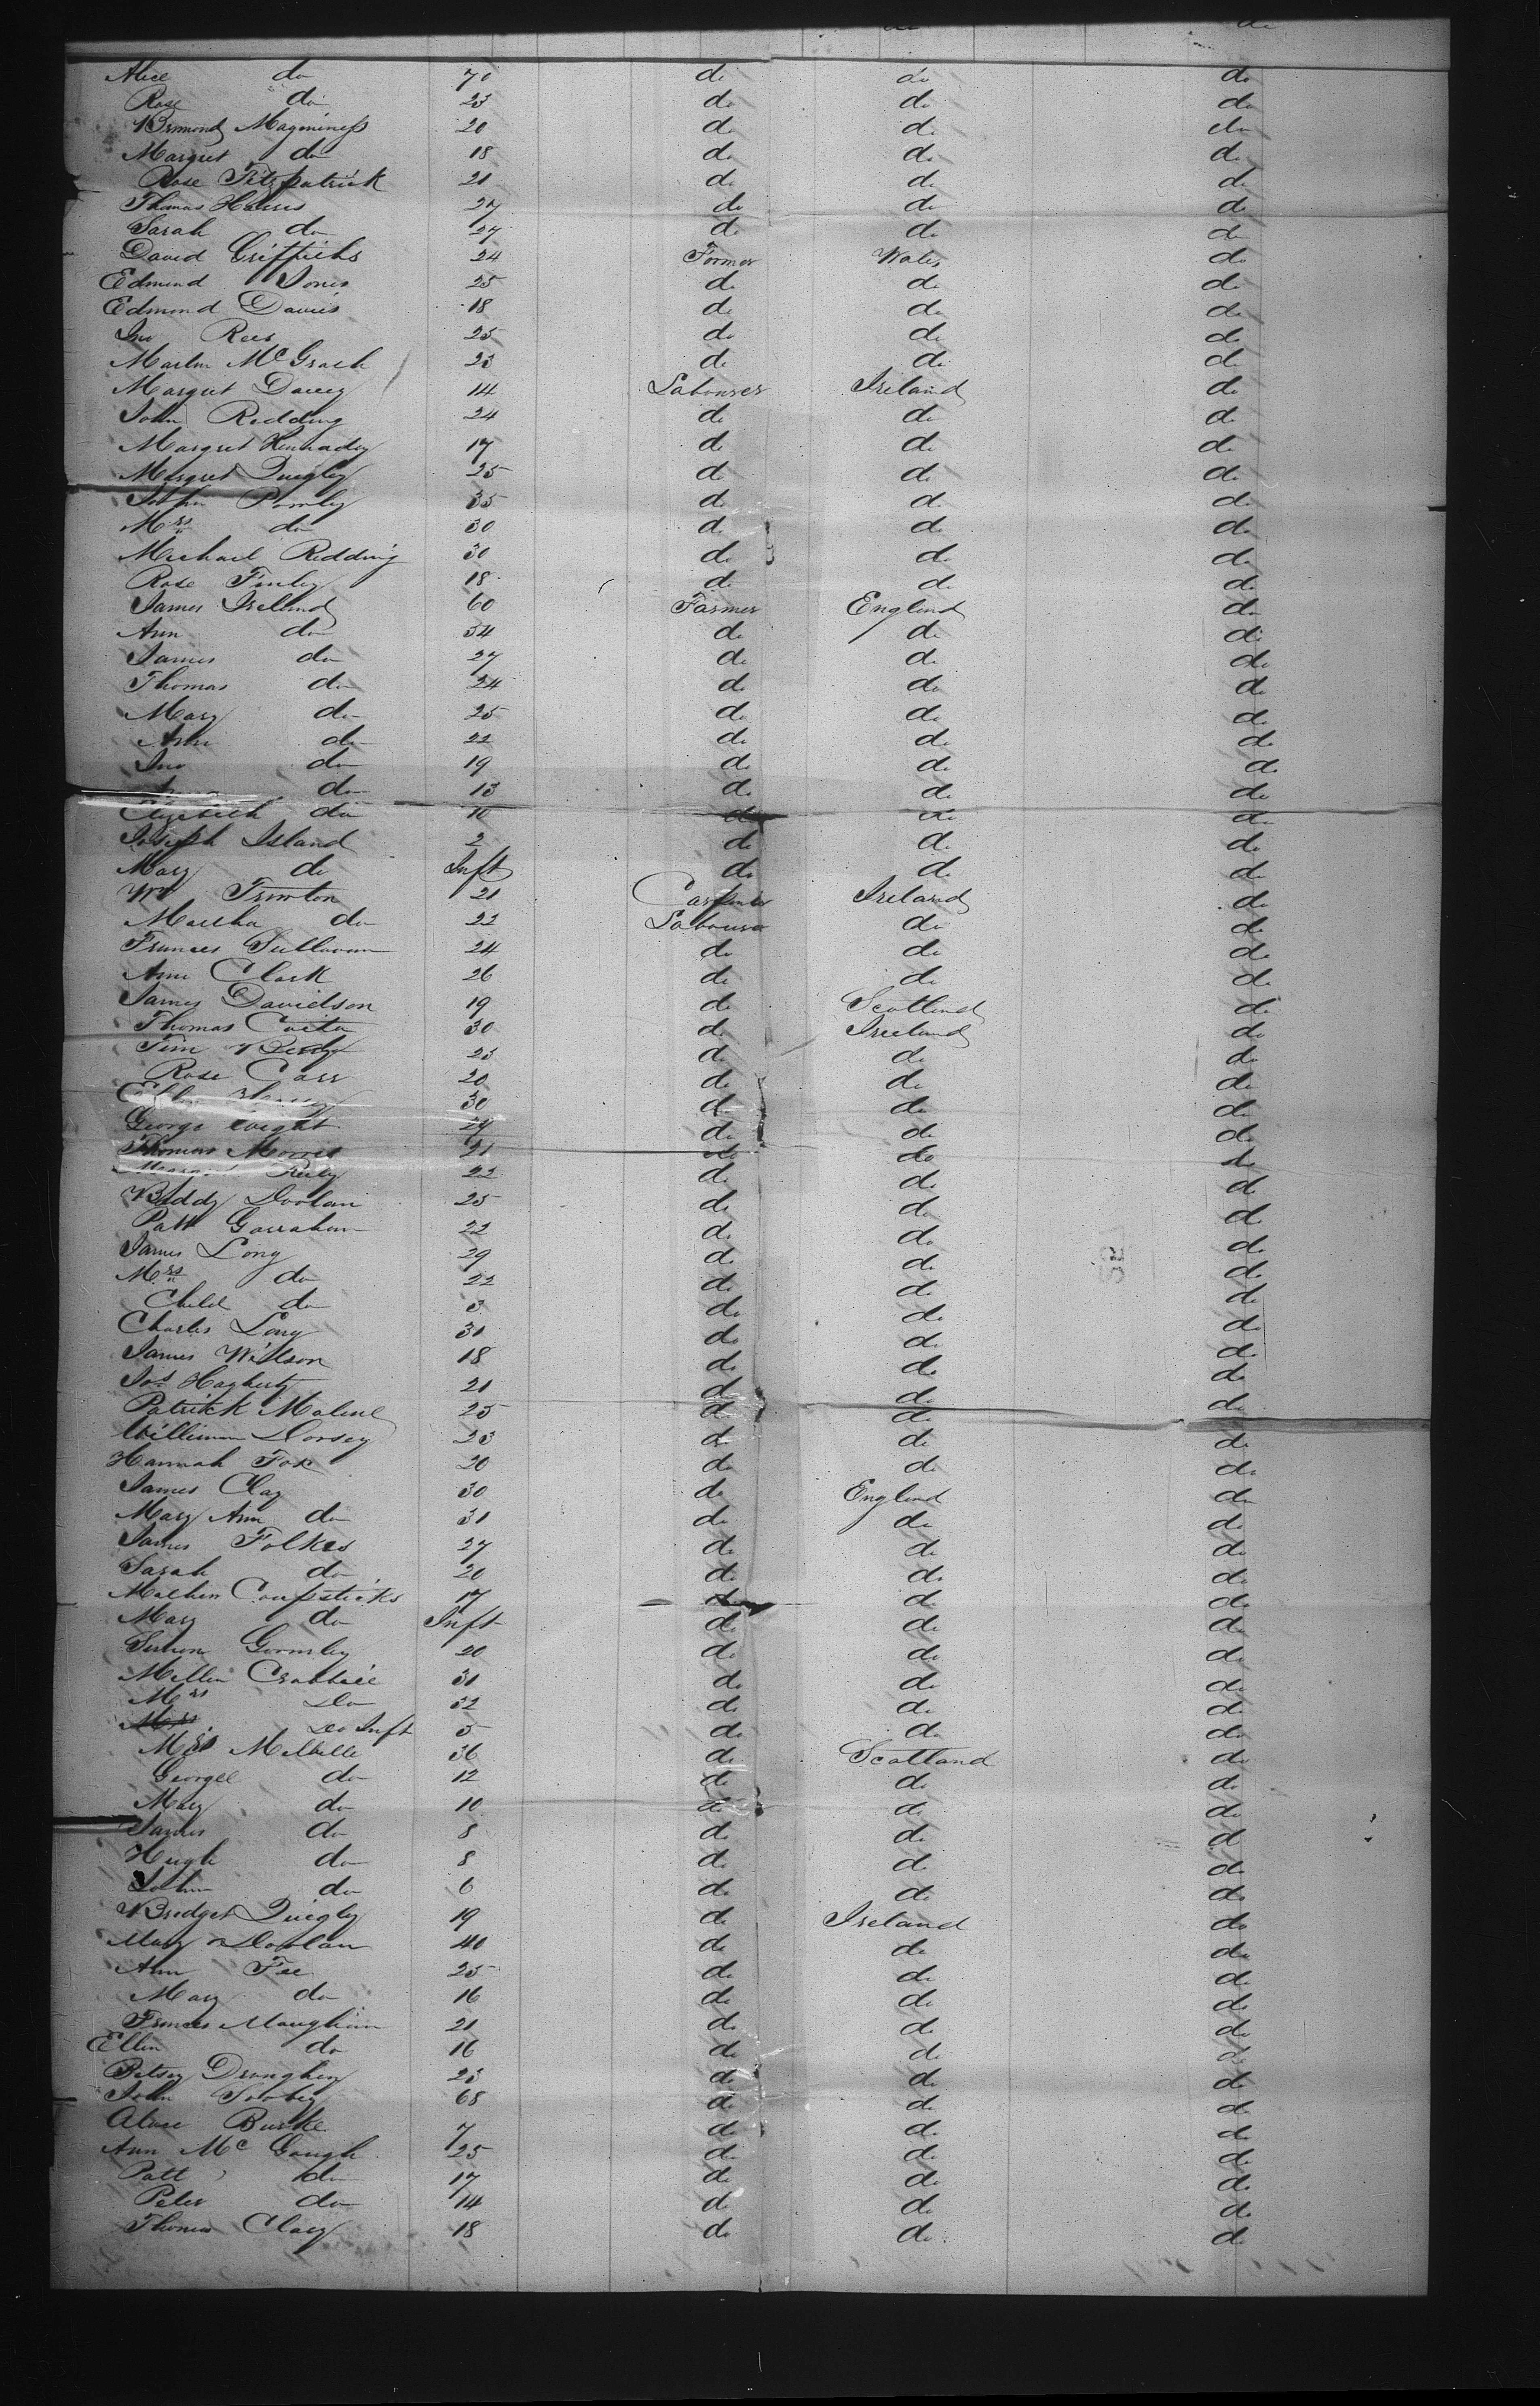 do do
Alice do 70 do do do
Rose do 23 do do do
Bernard Maginness 20 do do do
Margret do 18 do do do
Rose Fitzpatrick 21 do do do
Thomas Harris 27 do do do
Sarah do 27 do do do
David Griffiths 24 Farmer Wales do
Edmund Jones 25 do do do
Edmond Davies 18 do do do
Jno Rees 25 do do do
Martin McGrath 23 do do do
Margret Dacey 14 Labourer Ireland do
John Redding 24 do do do
Margret Hennadey 17 do do do
Margret Quigley 25 do do do
John 35 do do do
Mrs do 30 do do do
Michael Redding 30 do do do
Rose Finley 18 do do do
James Ireland 60 Farmer England do
Ann do 54 do do do
James do 27 do do do
Thomas do 24 do do do
Mary do 25 do do do
Ann do 22 do do do
Jno do 19 do do do
do 13 do do do
Elizebeth do 10 do do do
Joseph Island 2 do do do
Mary do Inft do do do
Wm Trimton 21 Carpenter Ireland do
Martha do 22 Labourer do do
Frances Sullivan 24 do do do
Ann Clark 26 do do do
James Davidson 19 do Scotland do
Thomas 30 do Ireland do
Tim 23 do do do
Rose Carr 20 do do do
30 do do do
George 24 do do do
Thomas Morris 21 do do do
22 do do do
Biddy Doolan 25 do do do
Patt Garrahan 22 do do do
James Long 29 do do do
Mrs do 22 do do do
Child do 3 do do do
Charles Long 31 do do do
James Wilson 18 do do do
Jos Hagherty 21 do do do
Patrick Malone 25 do do do
William Dorsey 23 do do do
Hannah Fox 20 do do do
James Clay 30 do England do
Mary Ann do 31 do do do
James Folkes 27 do do do
Sarah do 20 do do do
Coupsticks 17 do do do
Mary do Inft do do do
Simon Gormley 20 do do do
Crabtree 31 do do do
Mrs Do 32 do do do
Do Inft 5 do do do
Mrs Melville 36 do Scotland do
George do 12 do do do
Mary do 10 do do do
James do 8 do do do
Hugh do 8 do do do
John do 6 do do do
Bridget Quigley 19 do Ireland do
Mary Doolan 40 do do do
Ann Fee 25 do do do
Mary do 16 do do do
Frances Maughan 21 do do do
Ellin do 16 do do do
Betsey Droughey 23 do do do
John 68 do do do
Alice Burke 7 do do do
Ann Mc Gough 25 do do do
Patt do 17 do do do
Peter do 14 do do do
Thomas Clary 18 do do do